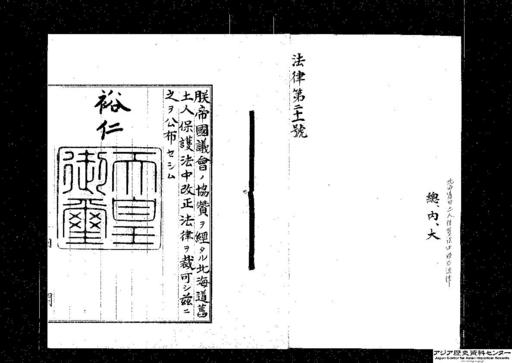 法律第二十一號
北海道旧土人保護法中改正法律
總、內、大
朕帝國議會ノ協贊ヲ經タル北海道舊
土人保護法中改正法律ヲ裁可シ茲ニ
之ヲ公布セシム
裕仁
天皇
御璽
アジア歴史資料センター
Japan Center for Asian Historical Records